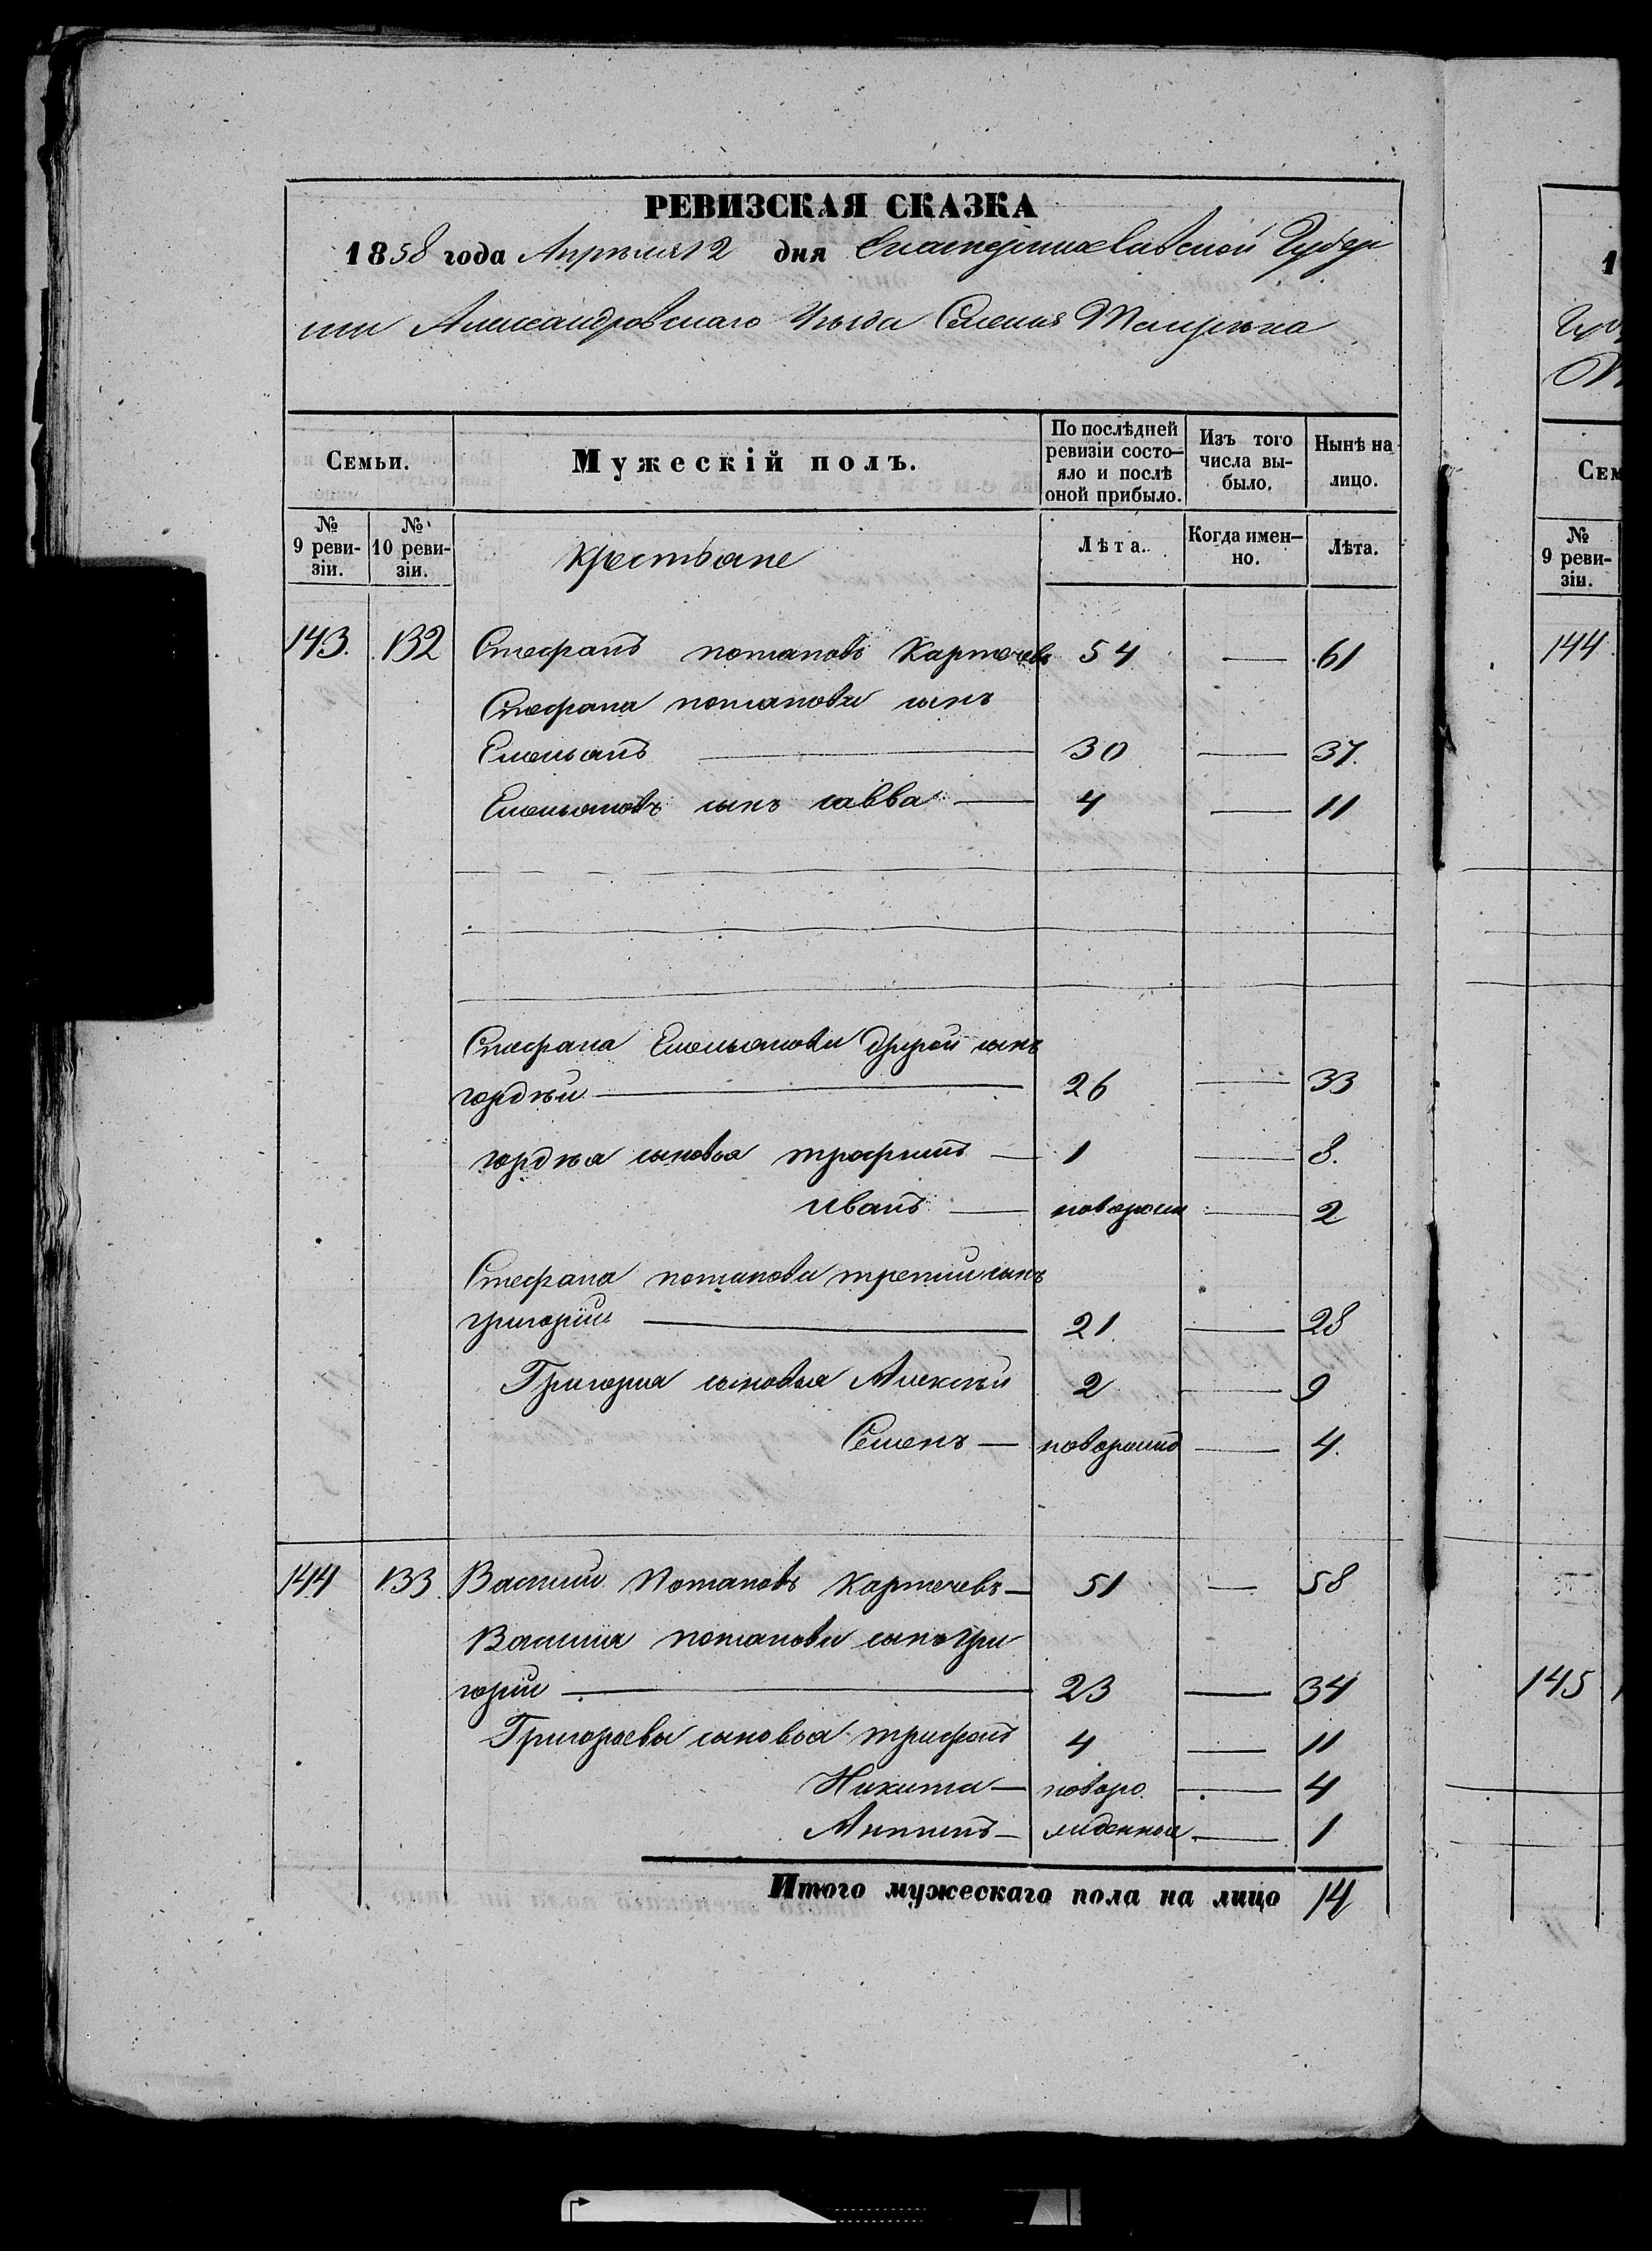 РЕВИЗСКАЯ СКАЗКА
1858 года Апреля 12 дня Екатеринославской Губер
нии Александровскаго Уезда Селения
Семьи. Мужескій полъ. По послѣдней ревизіи состо— яло и послѣ оной прибыло. Изъ того числа вы- было. Нынѣ на лицо.
№ 9 реви- зіи. № 10 реви- зіи. Крестьяне Лѣта. Когда имен— но. Лѣта.
143. 132 Стефанъ потаповъ Картечевъ 54 — 61
Стефана потапова сынъ
Емельянъ — 30 — 37.
Емельяновъ сынъ савва — 4 — 11
Стефана Емельянова другой сынъ
гордѣй — 26 — 33
гордѣя сыновья трофимъ — 1 — 8.
иванъ — новорож — 2
Стефана потапова третий сынъ
григорий — 21 — 28
Григория сыновья Алексѣй 2 — 9
Семенъ — новорожд — 4.
144 133 Василий Потаповъ Картечевъ — 51 — 58
Василия потапова сынъ Гри
горий — 23 — 34
Григорьевы сыновья трифонъ 4 — 11
Никита — новоро — 4
Антипъ — жденные — 1
Итого мужескаго пола на лицо 14
1
Сем
№ 9 реви- зіи.
144
145